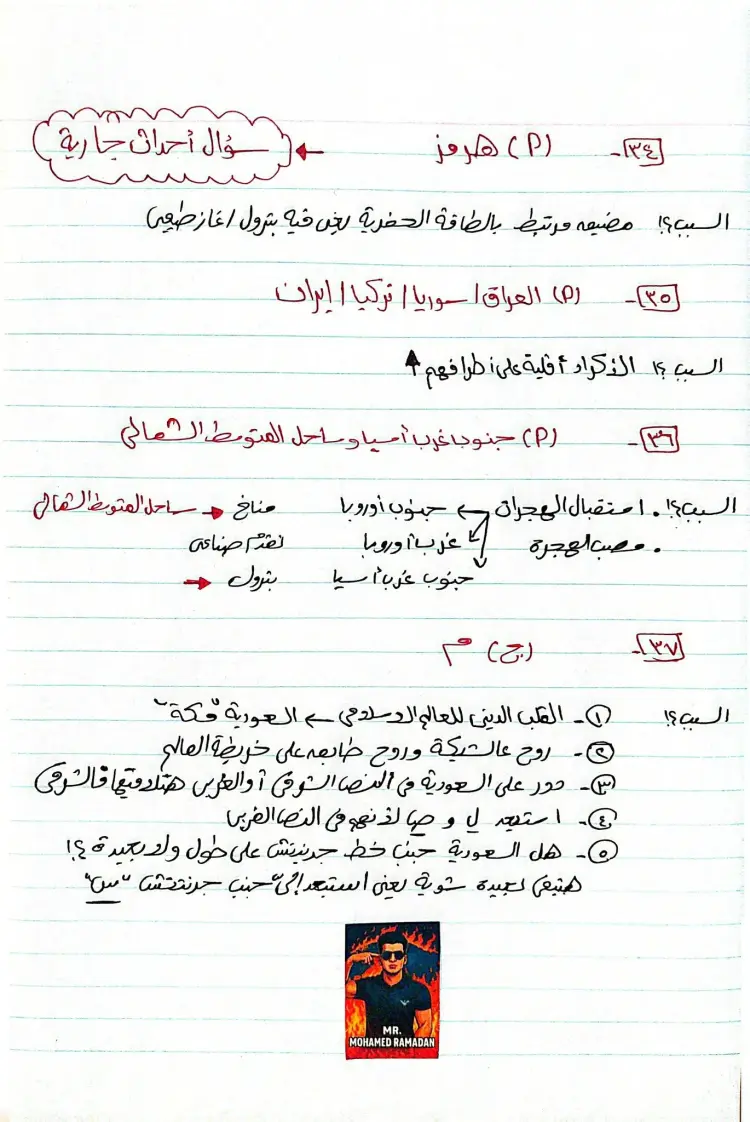 ٣٤- (P) هرمز ← سؤال أحداث جارية
السبب؟! مضيق مرتبط بالطاقة الحفرية يعني فيه بترول / غاز طبيعي
٣٥- (P) العراق / سوريا / تركيا / إيران
السبب؟! الأكراد أقلية على أطرافهم ↑
٣٦- (P) جنوب غرب آسيا وساحل المتوسط الشمالي
السبب؟! . استقبال الهجرات ← جنوب أوروبا مناخ ← ساحل المتوسط الشمالي
. مصب الهجرة غرب أوروبا تقدم صناعي
جنوب غرب آسيا بترول ←
٣٧- (ج) م
السبب؟! ①- القلب الديني للعالم الإسلامي ← السعودية "مكة"
②- روح عالشبكة وروح طابعه على خريطة العالم
③- دور على السعودية في النصف الشرقي أو الغربي هتلاقيها فالشرقي
④- استبعد ل و ص لأنهم في النصف الغربي
⑤- هل السعودية جنب خط جرينتش على طول ولا بعيدة؟!
هتبقى بعيدة شوية يعني استبعد إلي جنب جرينتش "س"
MR.
MOHAMED RAMADAN